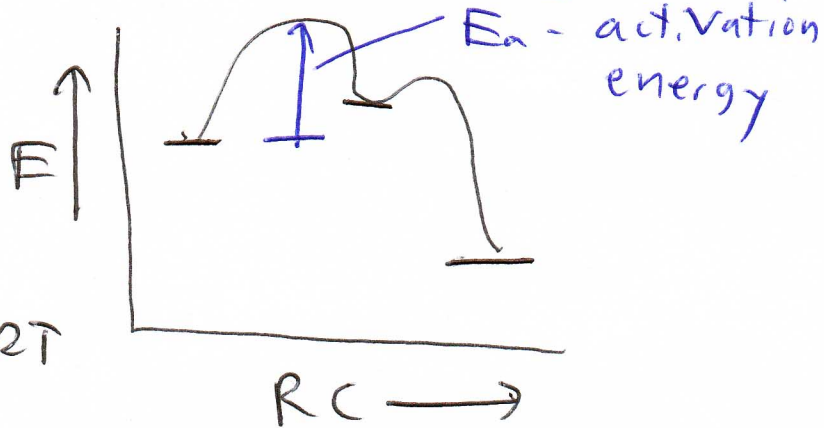 Ea - activation
energy
E
2T
RC